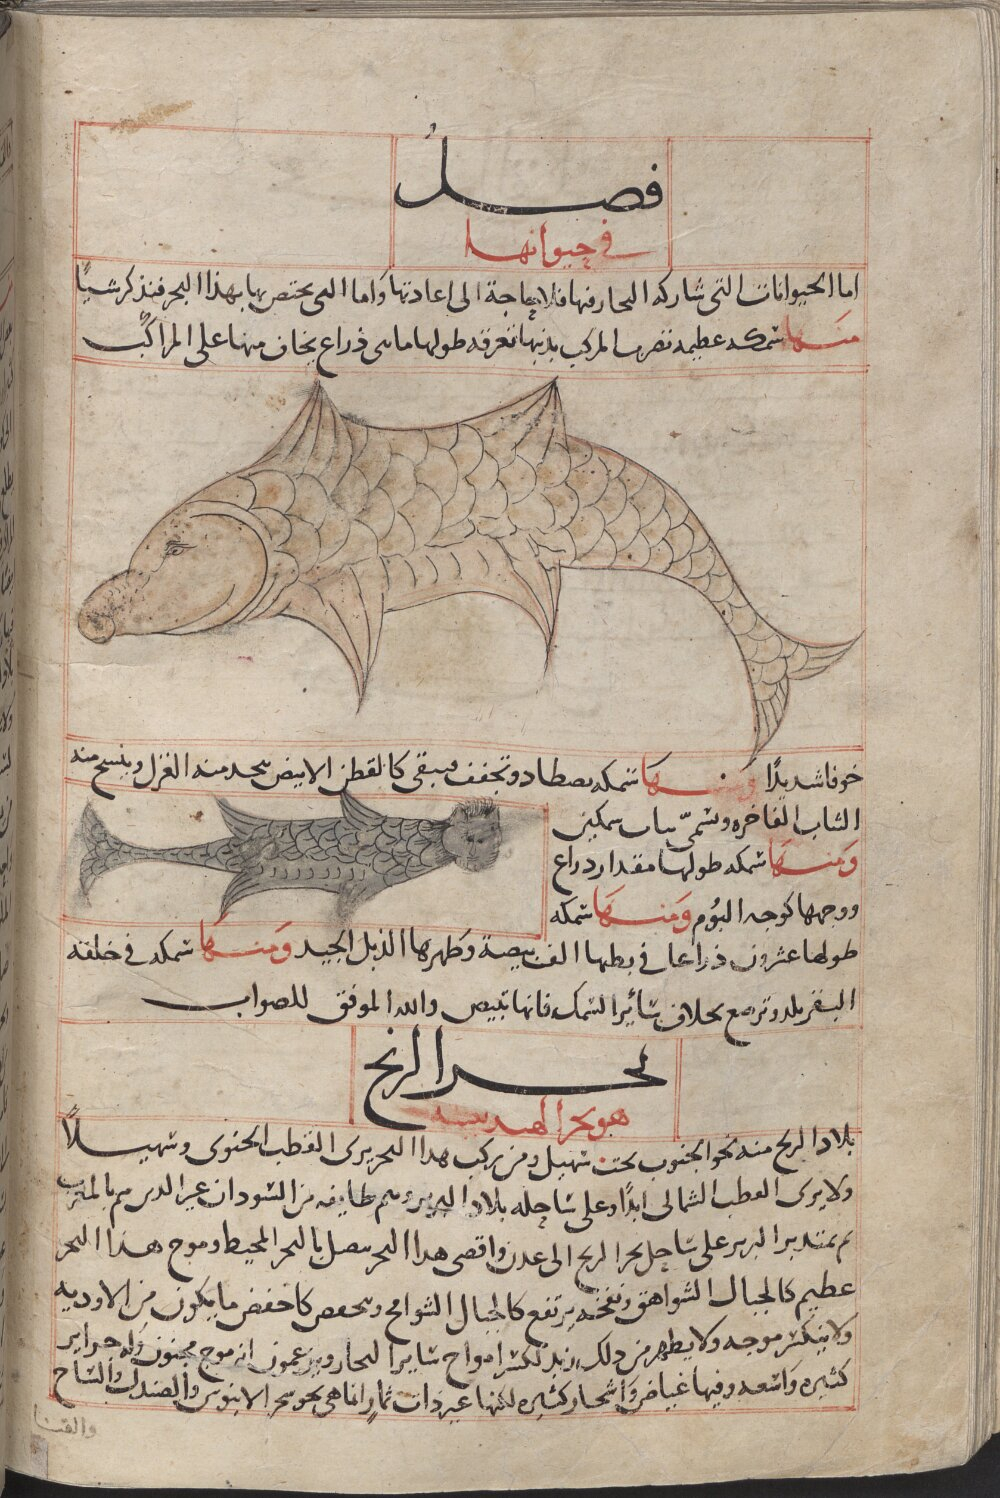 فصل
في حيوانها
اما الحيوانات التى شاركه البحار فيها فلا حاجة الى اعادتها واما التى يختص بها بهذا البحر فنذكر شيًا
منها سمكه عظيمه تضرب المركب بذنبها تغرقه طولها مايى ذراع يخاف منها على المراكب
خوفا شديدًا ومنها سمكه يصطاد وتجفف فيبقى كالقطن الابيض يتخد منه الغزل وينسج منه
الثياب الفاخره وتسمى ثياب سمكين
ومنها سمكه طولها مقدار ذراع
ووجهها كوجه البُوم ومنها سمكه
طولها عشرون ذراعا فى بطنها الف بيضة وظهرها الذبل الجيد ومنها سمكه فى خلقة
البقر يلد وترضع بخلاف سائر السمك فانها تبيض والله الموفق للصواب
بحر الزنج
هو بحر الهند بعينه
بلاد الزنج منه نحو الجنوب تحت سهيل ومن يركب هذا البحر يرى القطب الجنوبى وسهيلاً
ولا يرى القطب الشمالى ابدًا وعلى ساحله بلاد البربر وهم طايفه من السودان غير الذين هم بالمغرب
ثم يمتد بر البربر على ساحل بحر الزنج الى عدن واقصى هذا البحر متصل بالبحر المحيط وموج هذا البحر
عظيم كالجبال الشواهق يرتفع كالجبال الشوامخ وينخفض كاخفض ما يكون من الاوديه
ولا ينكسر موجه ولا يظهر من ذلك زبد لكسر امواج ساير البحار ويزعمون انه موج مجنون وله جزاير
كثيره واسعه وفيها غياض واشجار كثيره لكنها غير ذات ثمار انما هى نحو شجر الابنوس والصندل والساج
والقنا